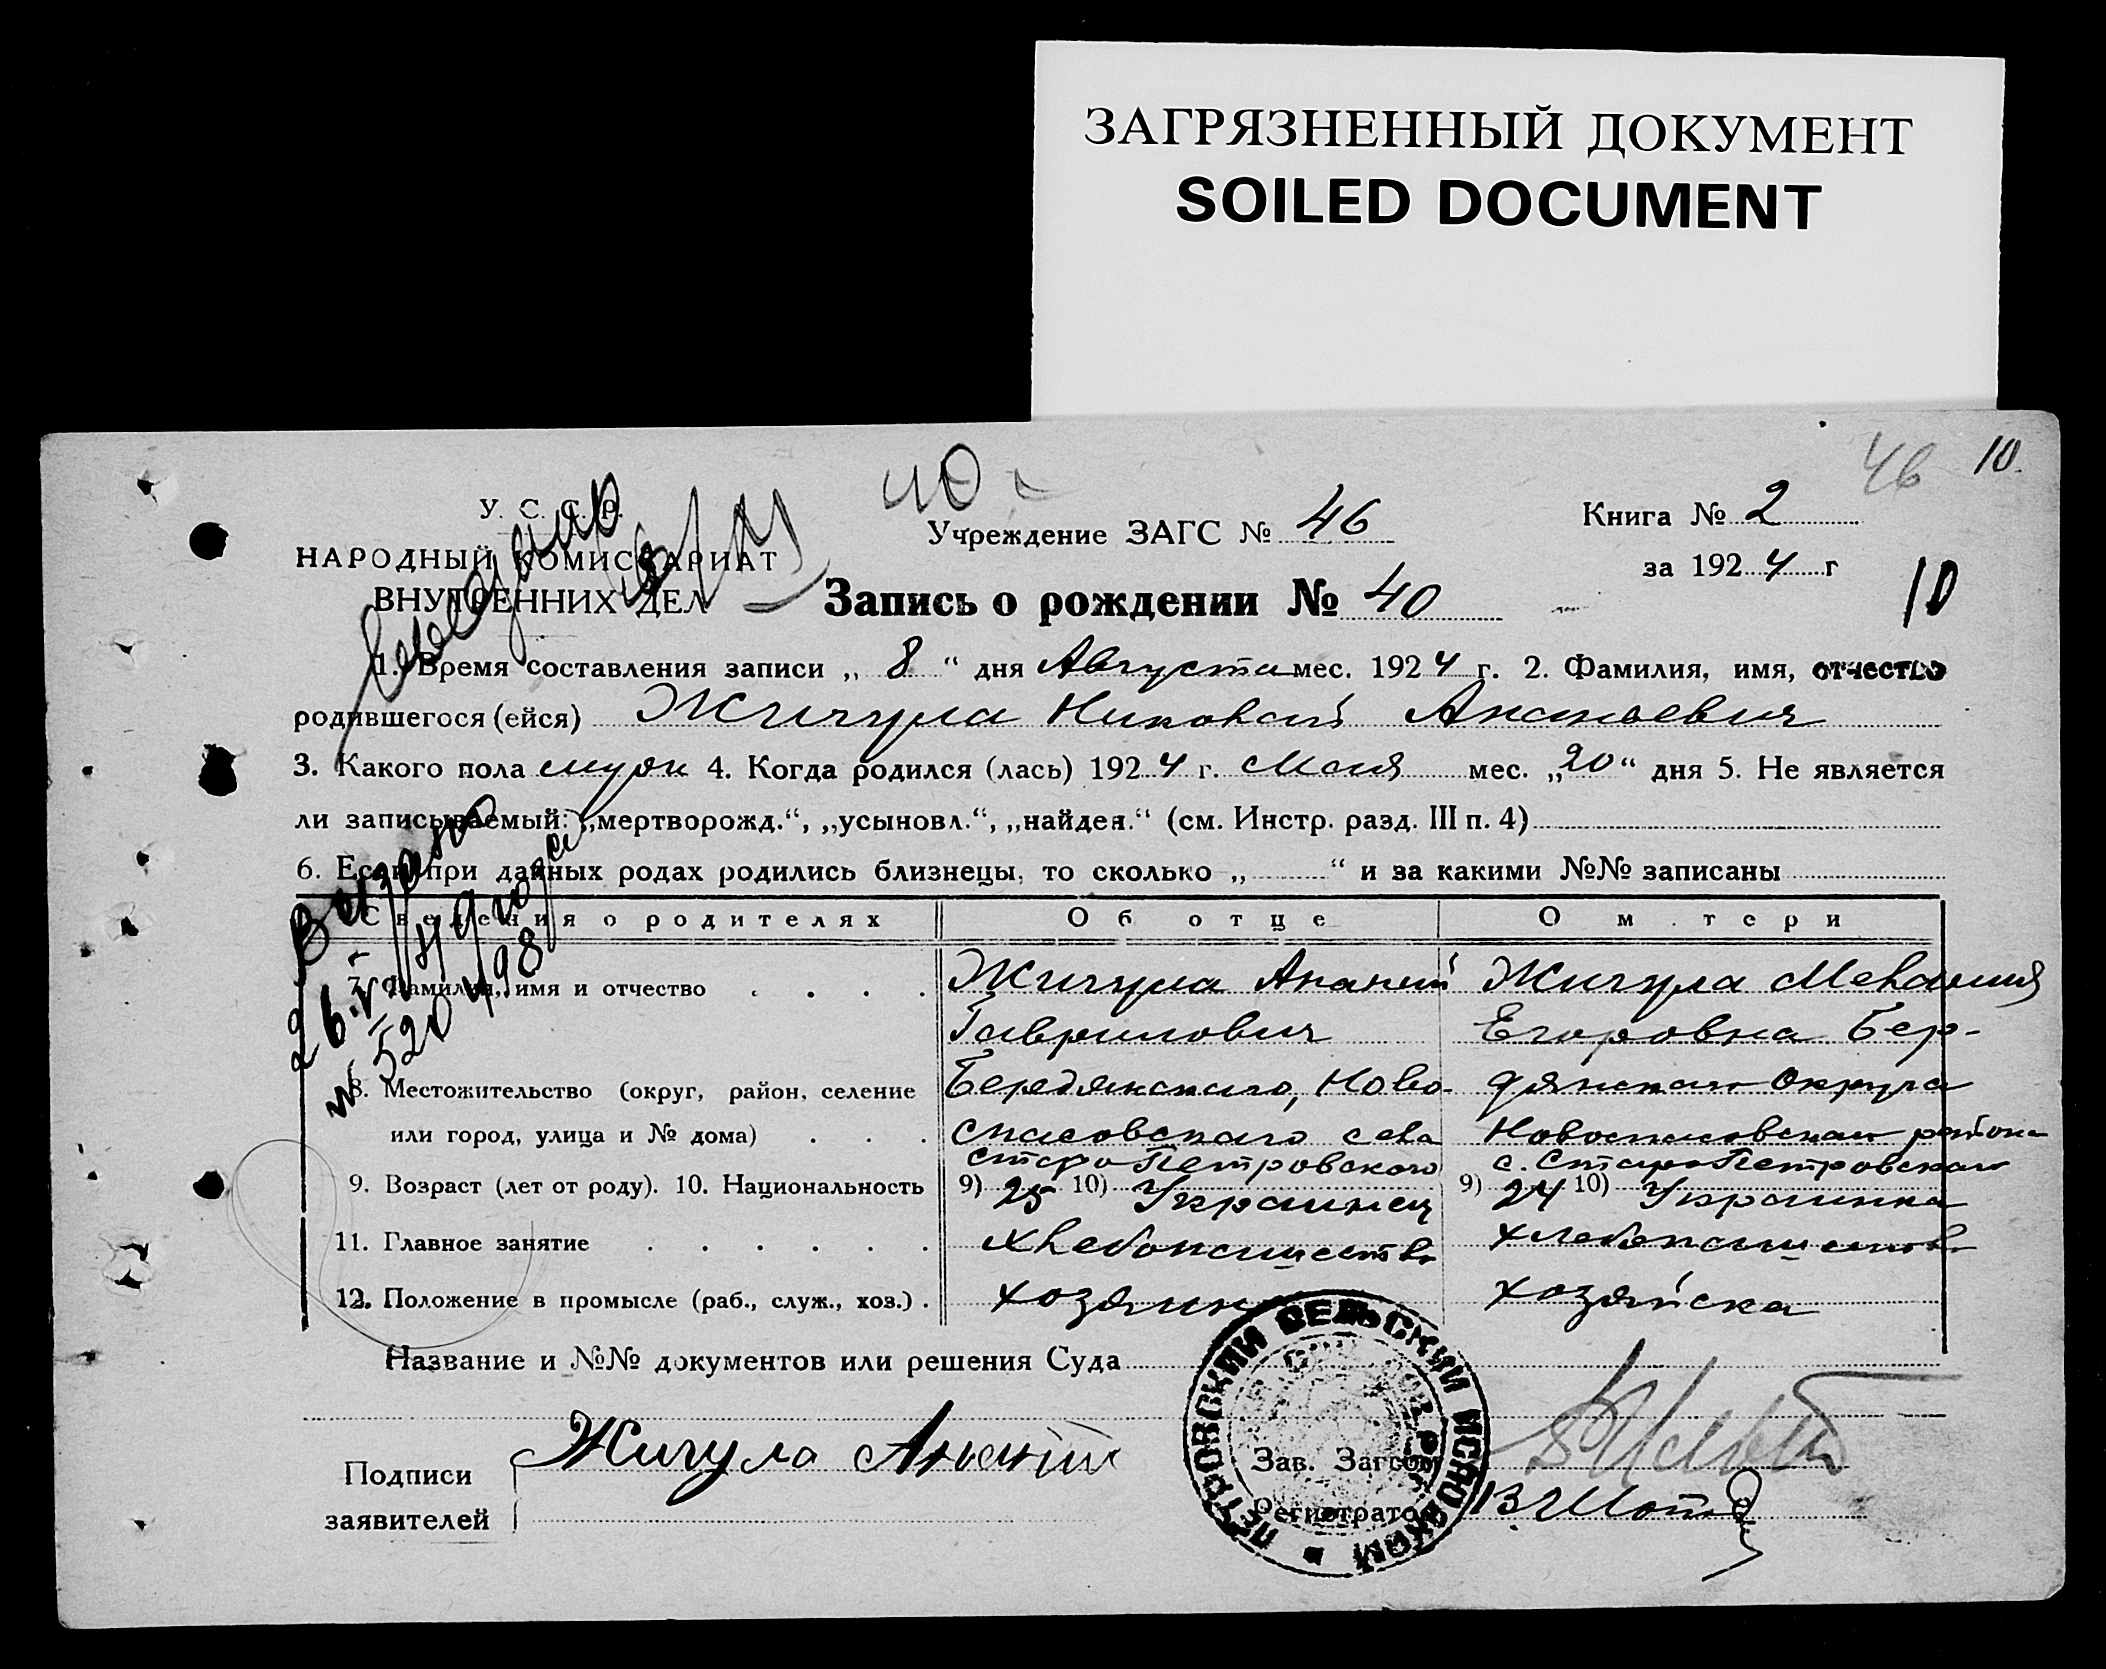 ЗАГРЯЗНЕННЫЙ ДОКУМЕНТ
SOILED DOCUMENT
46 10.
40
У. С. С. Р.
НАРОДНЫЙ КОМИССАРИАТ
ВНУТРЕННИХ ДЕЛ
Учреждение ЗАГС № 46
Книга № 2
за 1924 г
Запись о рождении № 40
10
1. Время составления записи „ 8 “ дня Августа мес. 1924 г. 2. Фамилия, имя, отчество
родившегося (ейся) Жигула Николай Ананьевич
3. Какого пола муж 4. Когда родился (лась) 1924 г. Мая мес. „20“ дня 5. Не является
ли записываемый: „мертворожд.“, „усыновл.“, „найден.“ (см. Инстр. разд. III п. 4)
6. Если при данных родах родились близнецы, то сколько „ “ и за какими №№ записаны
Выдано
№ 520498
Сведения о родителях Об отце О м тери
7. Фамилия, имя и отчество Жигула Ананий Жигула Мелания
Гаврилович Егоровна Бер-
8. Местожительство (округ, район, селение Бердянского, Ново- дянского Округа
или город, улица и № дома) спасовского села Новоспасовского района
Старо Петровского с. Старо Петровского
9. Возраст (лет от роду). 10. Национальность 9) 25 10) Украинец 9) 24 10) Украинка
11. Главное занятие хлебопашество хлебопашество
12. Положение в промысле (раб., служ., хоз.) хозяин хозяйска
Название и №№ документов или решения Суда
Подписи
заявителей
Жигула Ананий
Зав. Загсом
Регистратор
ПЕТРОВСКИЙ СЕЛЬСКИЙ ИСПОЛКОМ